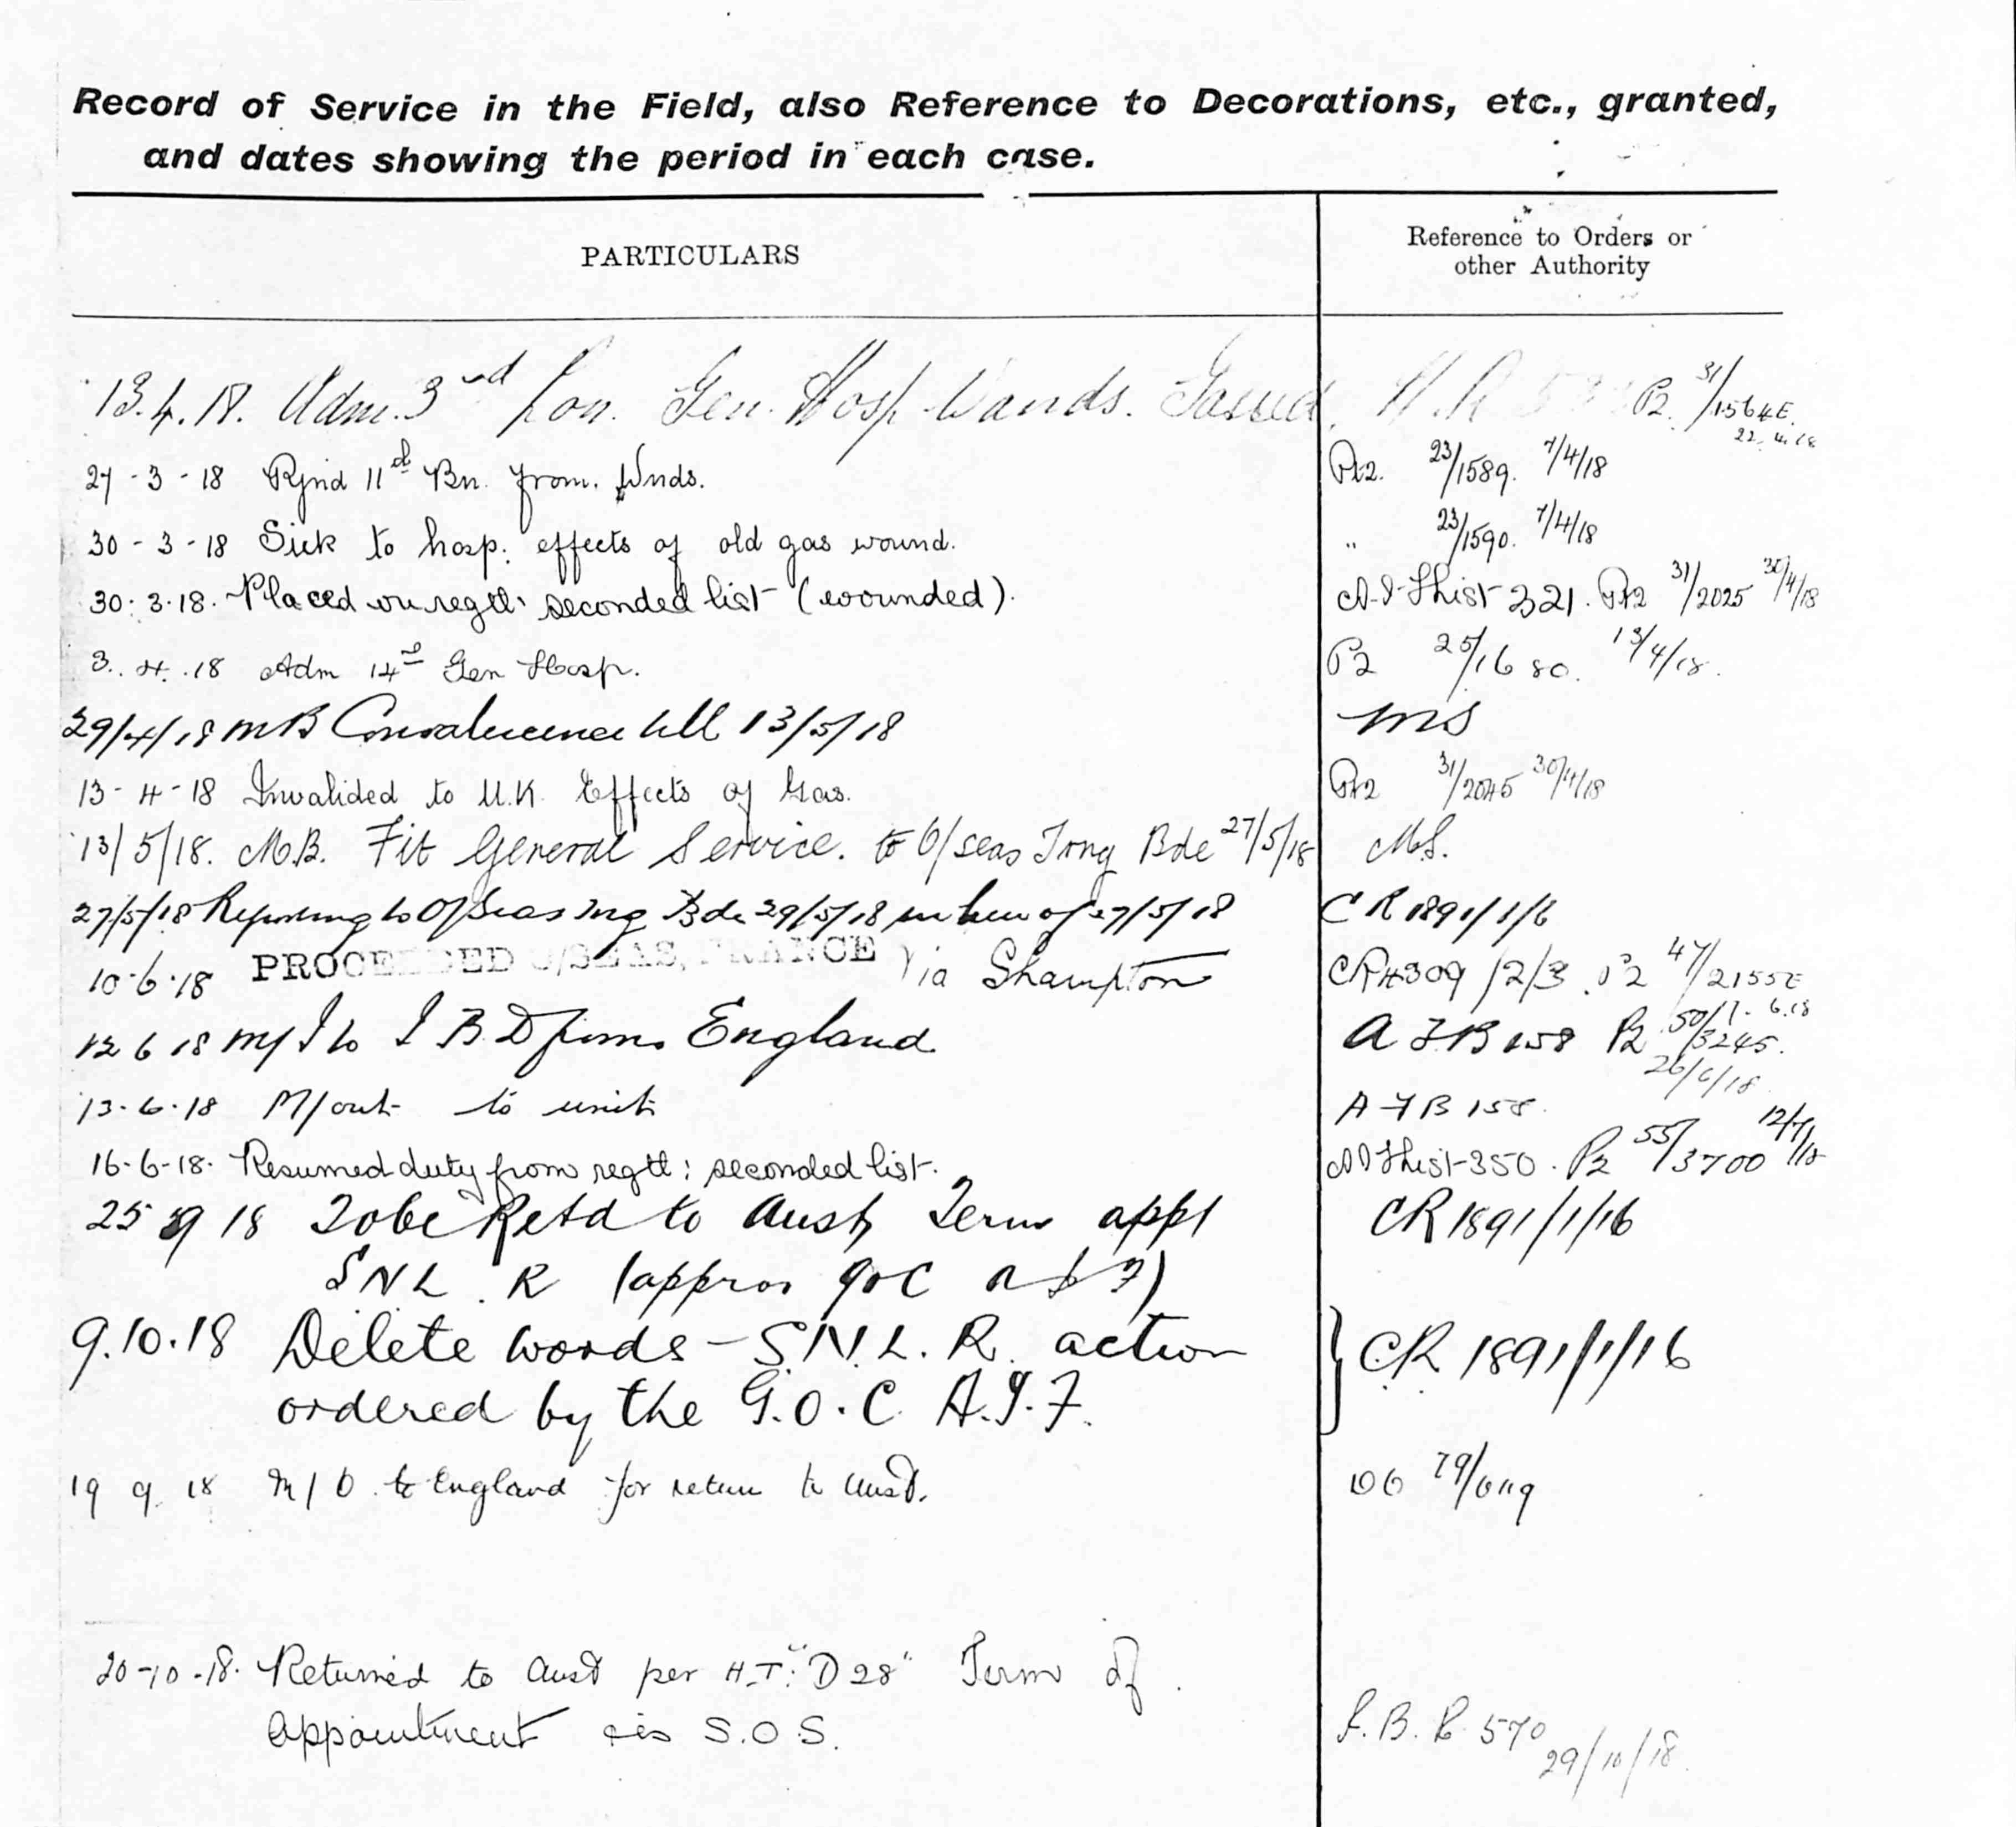 Record of Service in the Field, also Reference to Decorations, etc., granted,
and dates showing the period in each case.
PARTICULARS
Reference to Orders or
other Authority
13.4.18. Adm. 3rd Lon. Gen. Hosp Wands. Gassed. H.R P2. 31/1564E.
22.4.18
27-3-18 Rjnd 11th Bn. from. Wnds. Pt2. 23/1589. 7/4/18
30-3-18 Sick to hosp: effects of old gas wound. " 23/1590. 7/4/18
30:3.18. Placed on regtl: seconded list (wounded). List 321. Pt2 31/2025 30/4/18
3.4.18 Adm 14th Gen Hosp. P2 25/1680. 13/4/18.
29/4/18 MB Convalescence till 13/5/18 MS
13-4-18 Invalided to U.K. Effects of Gas. Pt2 31/2045 30/4/18
13/5/18. M.B. Fit General Service. to O/seas Trng Bde 27/5/18 M.S.
27/5/18 Reporting to O/Seas Trng Bde 29/5/18 in lieu of 27/5/18 CR 1891/1/16
10.6.18 PROCEEDED O/SEAS, FRANCE Via Shampton CR4309/2/3. P2 47/2155E
6.18
12 6 18 M/I to I B D from England A F B 158 P2 50/3245.
26/6/18
13.6.18 M/out to unit A F B 158.
16-6-18. Resumed duty from regtl: seconded list. List 350. P2 55/3700 12/7/18
25 9 18 To be Retd to Aust, Term appt CR 1891/1/16
S N L. R (approv GOC A I F)
9.10.18 Delete words - S.N.L.R. action } CR 1891/1/16
ordered by the G.O.C. A.I.F.
19 9 18 M/O to England for return to Aust. DO 79/6119
20-10-18. Returned to Aust per H.T. "D 28" Term of
Appointment S.O.S.
570 29/10/18.